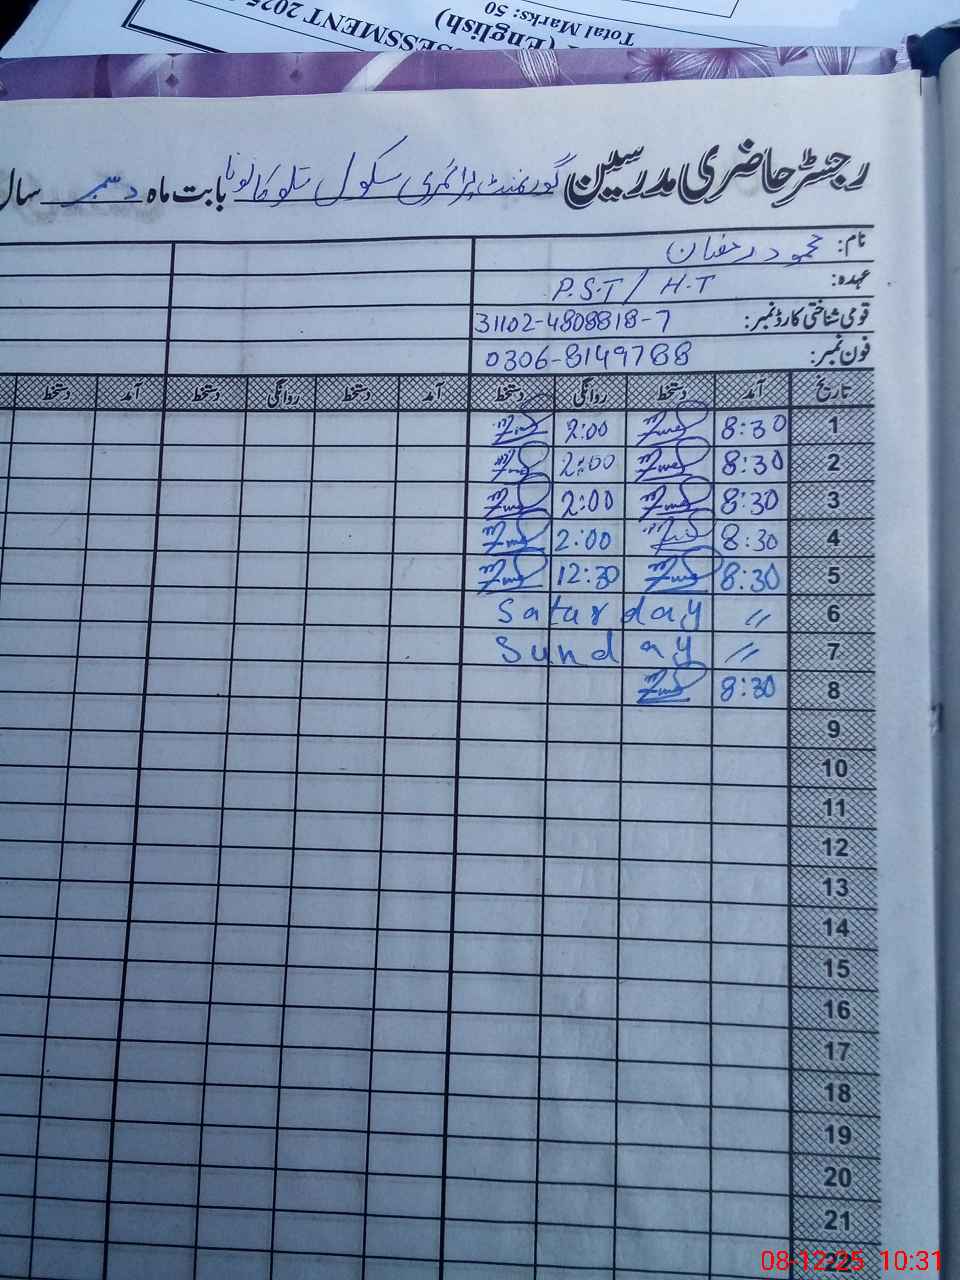 SSESSMENT 2025
(English)
Total Marks: 50
رجسٹر حاضری مدرسین گورنمنٹ پرائمری سکول تلو کا لونا بابت ماہ دسمبر سال
نام: محمود رمضان
عہدہ: P.S.T / H.T
قومی شناختی کارڈ نمبر: 31102-4808818-7
فون نمبر: 0306-8149788
تاریخ آمد دستخط روانگی دستخط آمد دستخط روانگی دستخط آمد دستخط
1 8:30 2:00
2 8:30 2:00
3 8:30 2:00
4 8:30 2:00
5 8:30 12:30
6 〃 Saturday
7 〃 Sunday
8 8:30
9
10
11
12
13
14
15
16
17
18
19
20
21
22
08-12-25 10:31